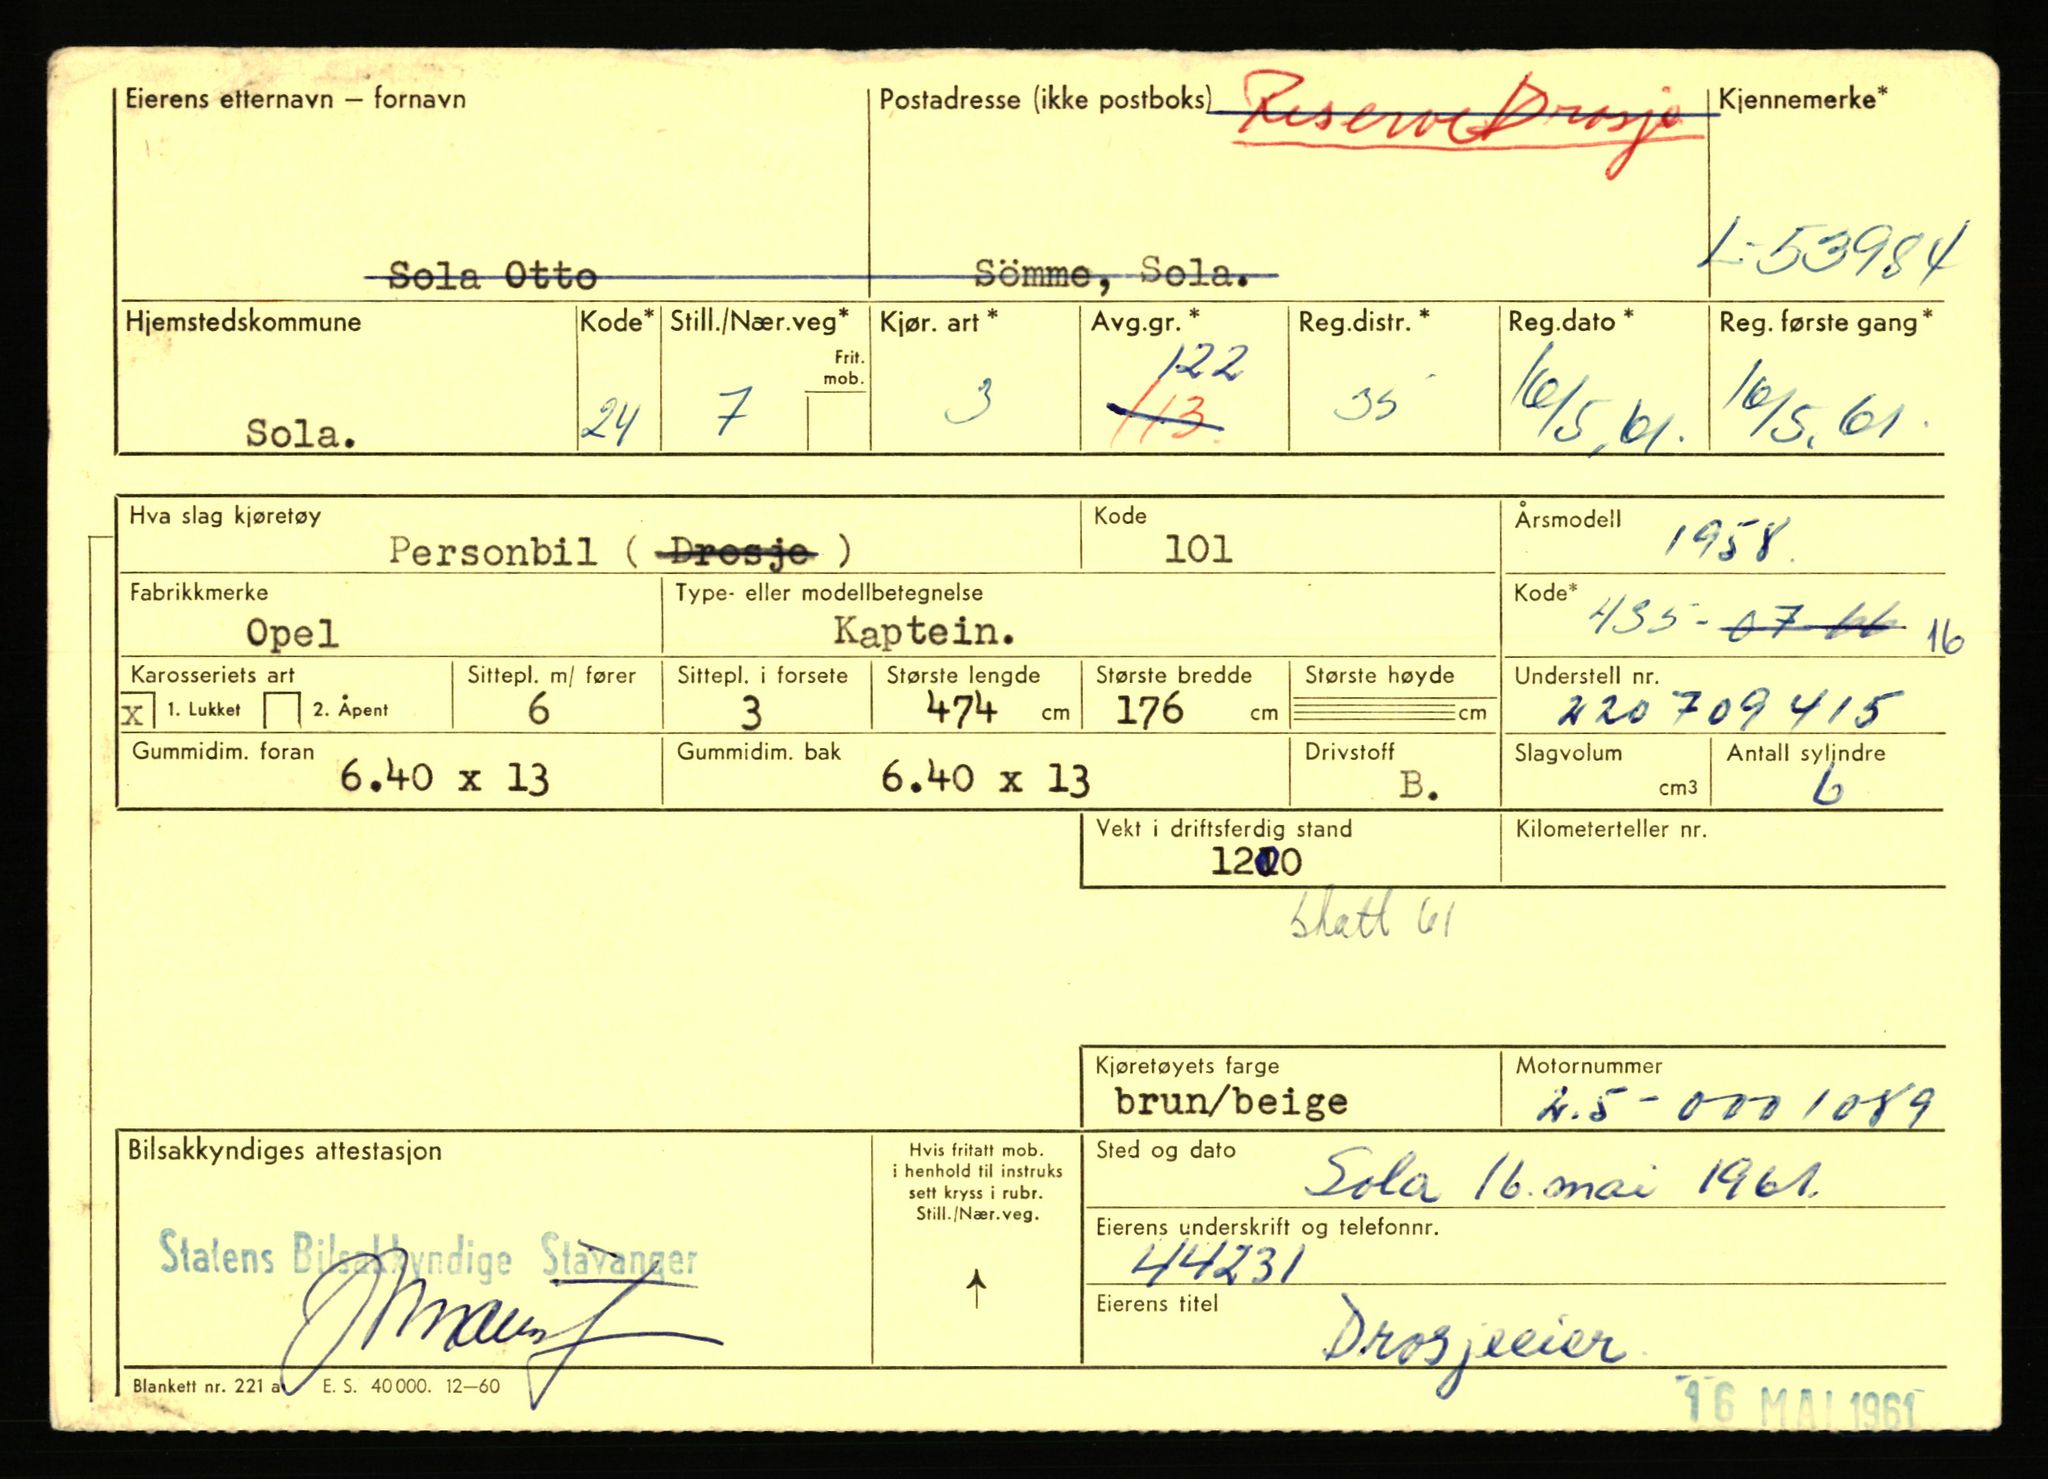 Eierens etternavn – fornavn
Postadresse (ikke postboks)
Reserve Drosje
Kjennemerke*
Sola Otto
Sömme, Sola.
L-53984
Hjemstedskommune
Kode*
Still./Nær.veg*
Kjør. art *
Avg.gr. *
Reg.distr. *
Reg.dato *
Reg. første gang*
Frit.
mob.
122
Sola.
24
7
3
113
35
16/5.61.
16/5.61.
Hva slag kjøretøy
Personbil ( Drosje )
Kode
101
Årsmodell
1958.
Fabrikkmerke
Opel
Type- eller modellbetegnelse
Kaptein.
Kode*
435- 07 66 16
Karosseriets art
x 1. Lukket 2. Åpent
Sittepl. m/ fører
6
Sittepl. i forsete
3
Største lengde
474 cm
Største bredde
176 cm
Største høyde
cm
Understell nr.
220709415
Gummidim. foran
6.40 x 13
Gummidim. bak
6.40 x 13
Drivstoff
B.
Slagvolum
cm3
Antall sylindre
6
Vekt i driftsferdig stand
1200
Kilometerteller nr.
skatt 61
Kjøretøyets farge
brun/beige
Motornummer
2.5-0001089
Bilsakkyndiges attestasjon
Hvis fritatt mob.
i henhold til instruks
sett kryss i rubr.
Still./Nær.veg.
↑
Sted og dato
Sola 16. mai 1961.
Statens Bilsakkyndige Stavanger
Eierens underskrift og telefonnr.
44231
Eierens titel
Drosjeeier
Blankett nr. 221 a. E. S. 40000. 12—60
16 MAI 1961